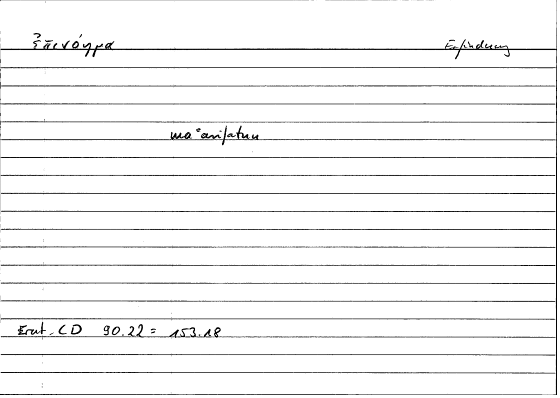 ἐπινόημα Erfindung
maʿrifatun
Erat. CD 90.22 = 153.18